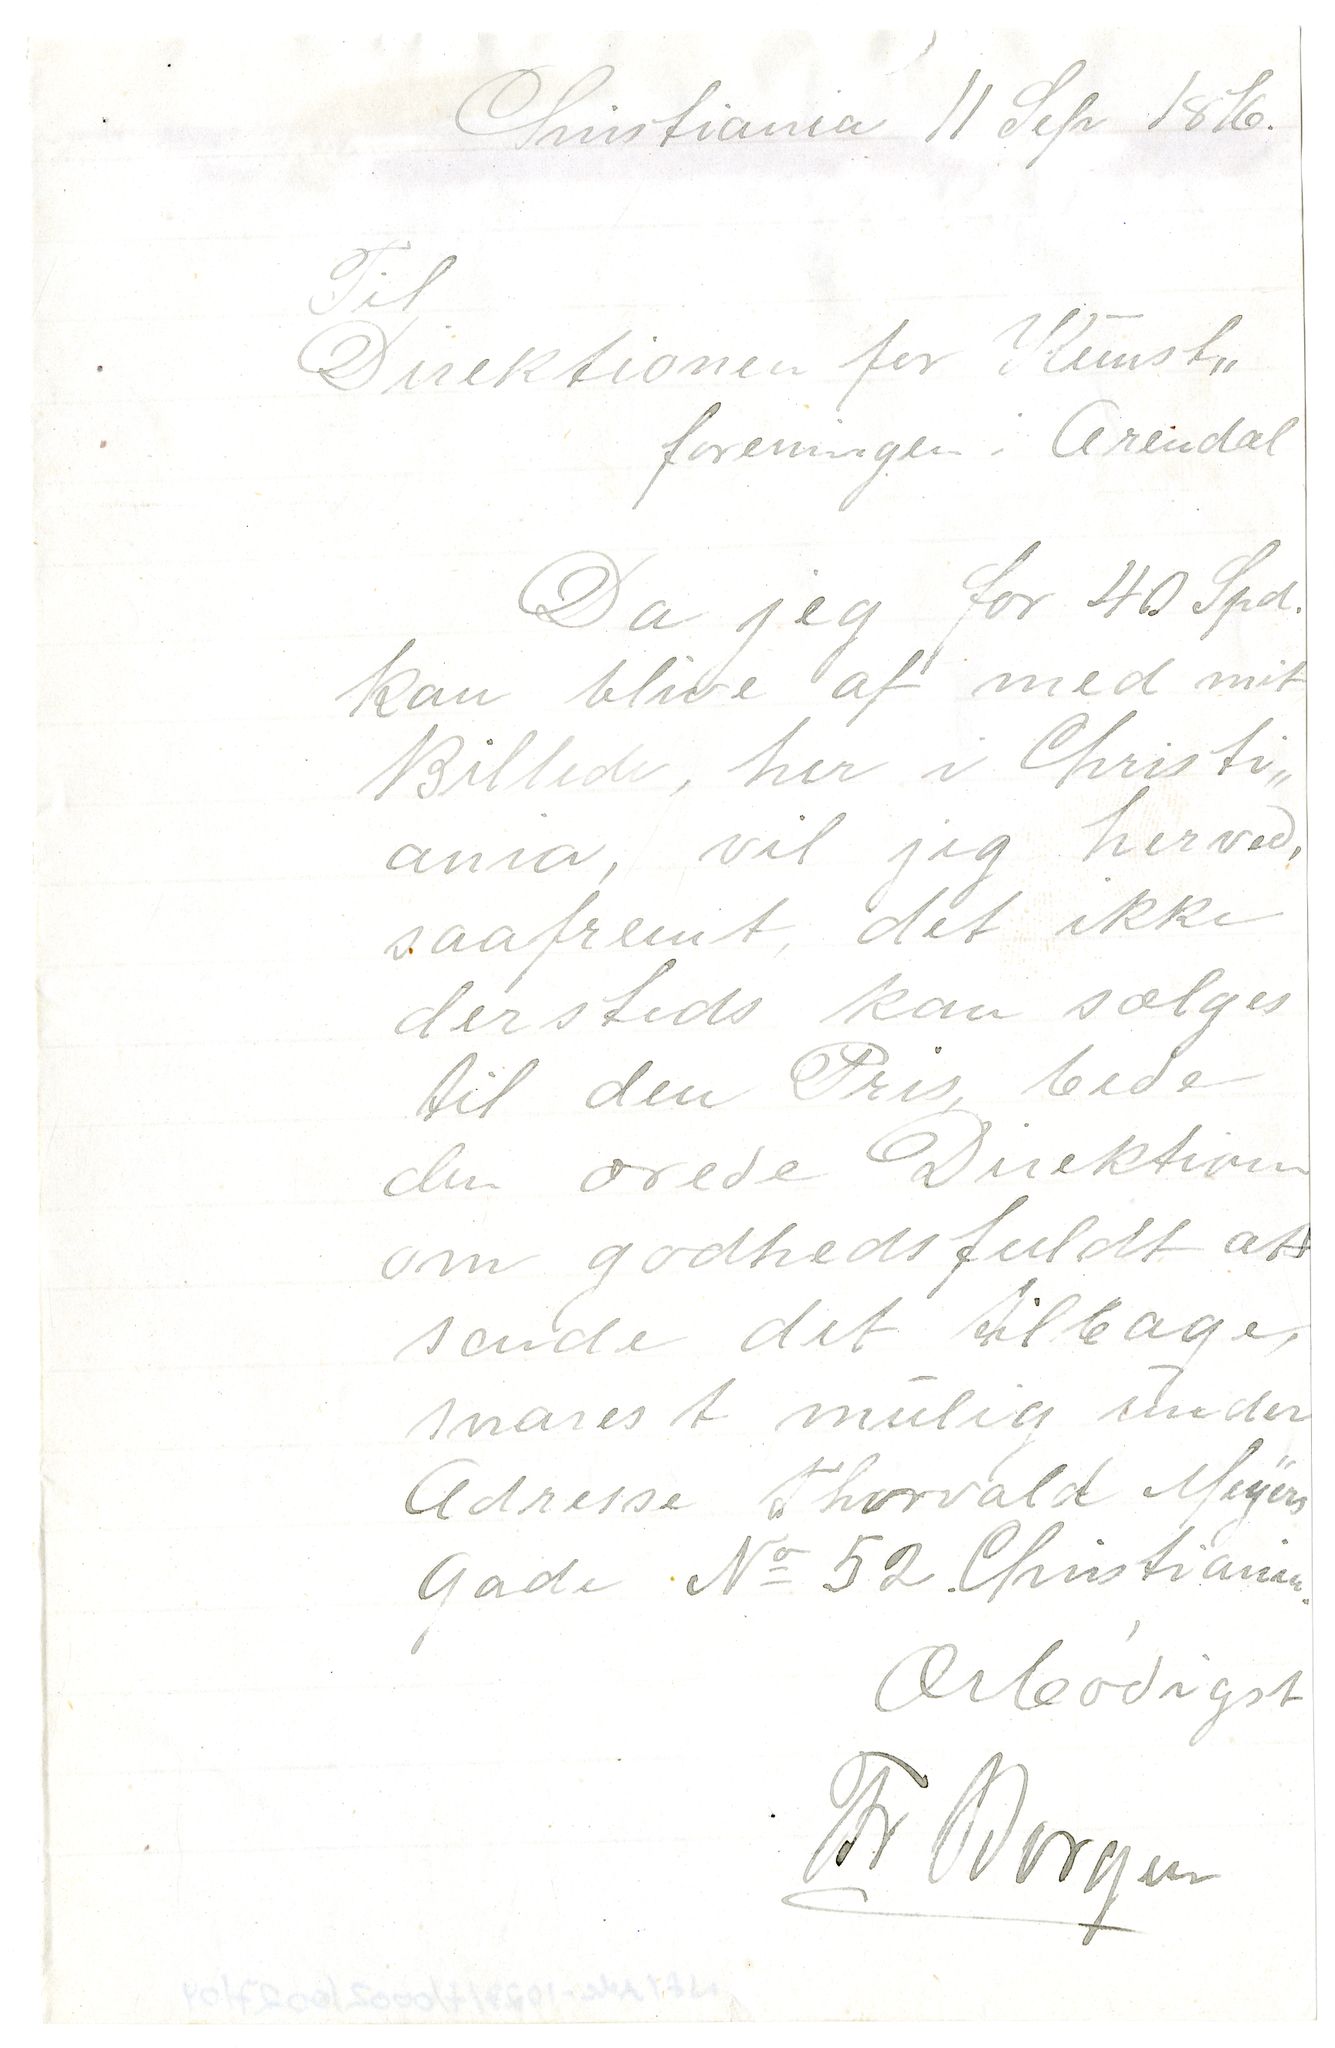 Christiania 11 Sep 1876.
Til
Direktionen for Kunst„
foreningen i Arendal
Da jeg for 40 Spd.
kan blive af med mit
Billede, her i Christi„
ania, vil jeg herved,
saafremt, det ikke
dersteds kan sælges
til den Pris, bede
den ærede Direktion
om godhedsfuldt at
sende det tilbage,
snarest mulig under
Adresse Thorvald Meÿers
Gade No 52 Christiania.
Ærbödigst
Fr Borgen